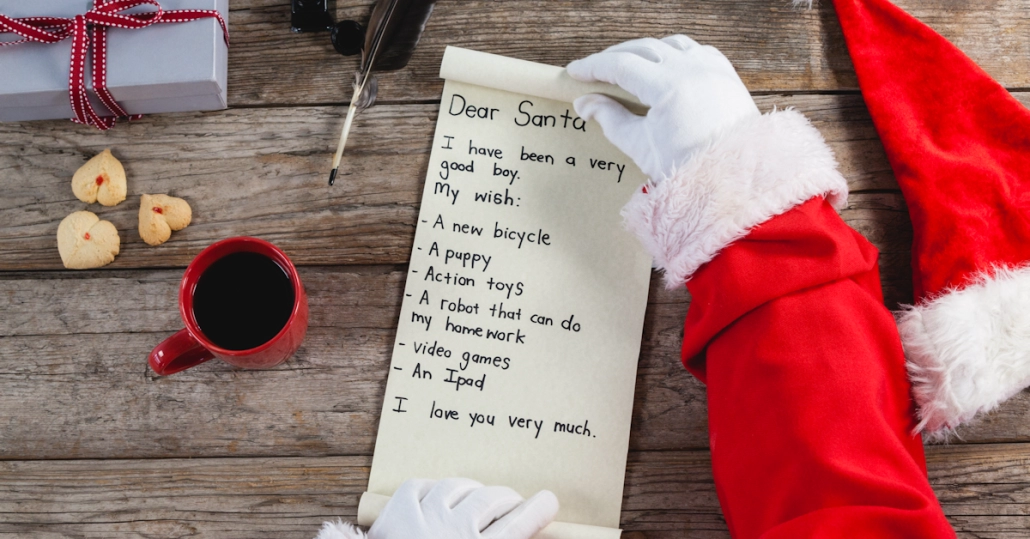 Dear Santa
I have been a very
good boy.
My wish:
- A new bicycle
- A puppy
- Action toys
- A robot that can do
my homework
- video games
- An Ipad
I love you very much.